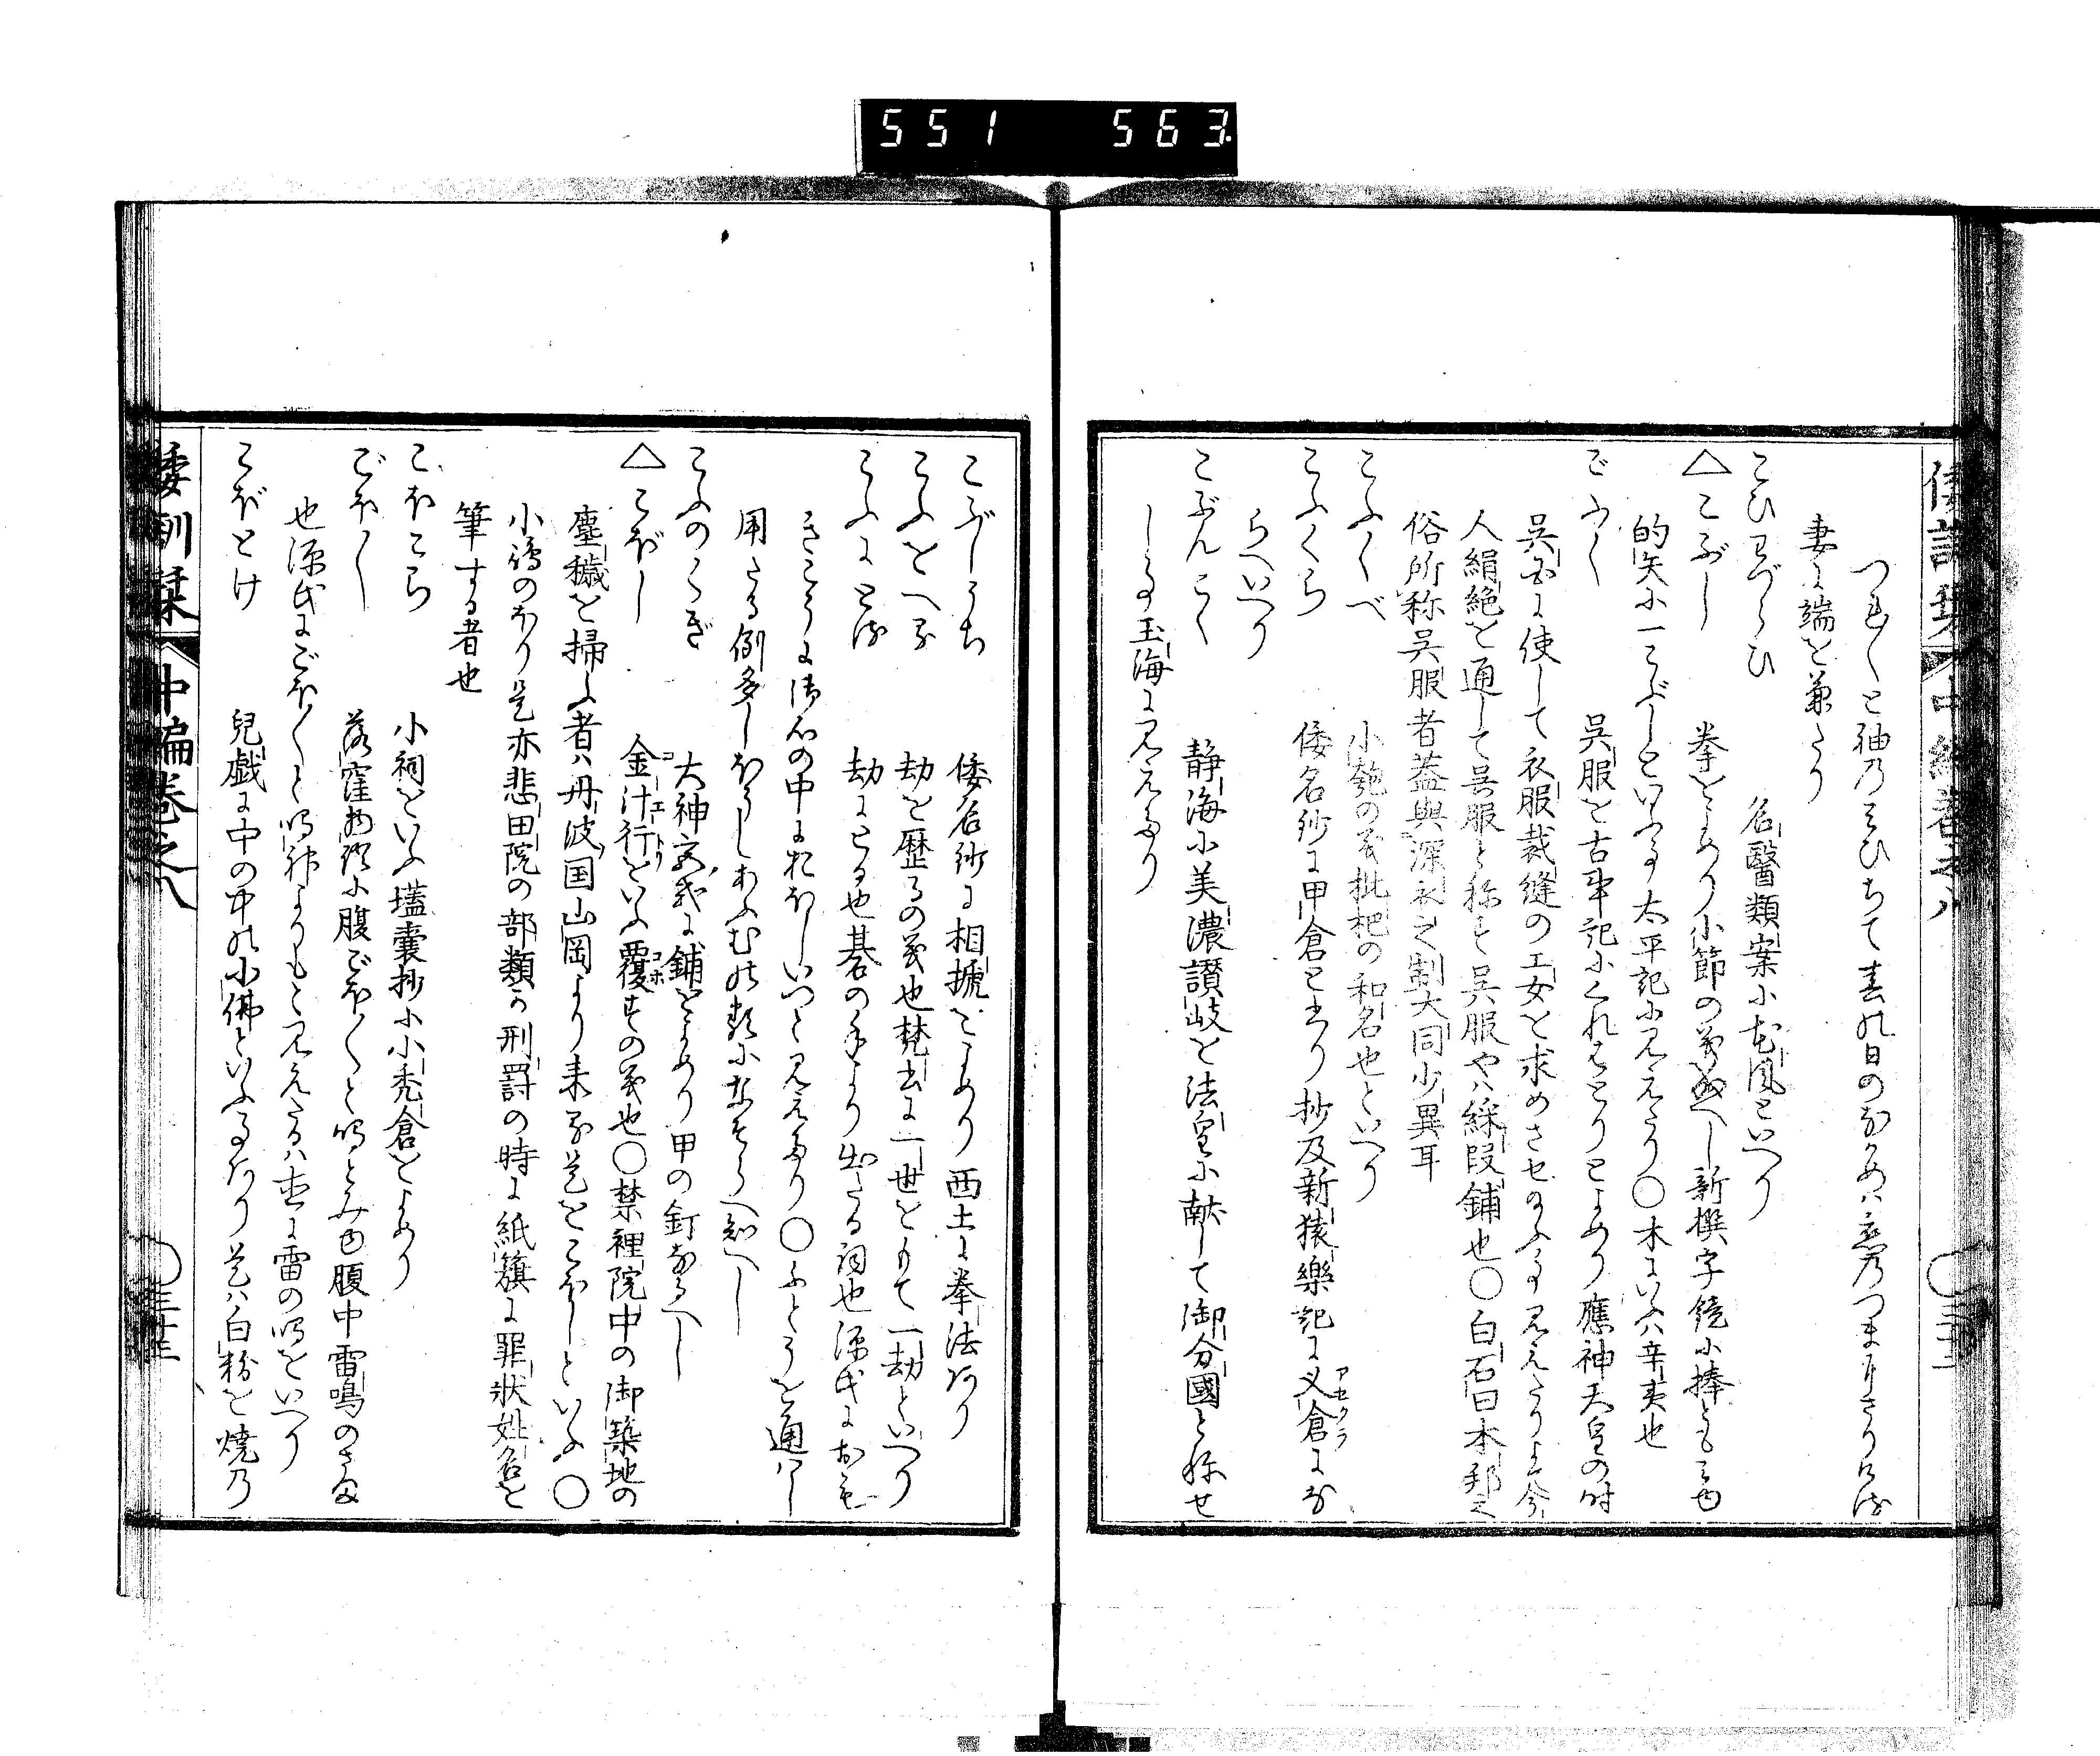 551 563
つれ〳〵と袖乃みひちて春の日のながめハ恋乃つまにさりける
妻に端を兼たり
こひわづらひ 名醫類案に花風といへり
△こぶし 拳をよめり小節の義なるへし新撰字鏡に捧もよめり
的矢に一こぶしといへる事太平記に見えたり○木にいふハ辛夷也
ごふく 呉服を古事記にくれはとりとよめり應神天皇の時
呉国に使して衣服裁縫の工女を求めさせたまふ事見えたりよて今
人絹絶を通して呉服と称す呉服やハ綵段鋪也○白石曰本邦之
俗所称呉服者蓋與深衣之製大同少異耳
こふくべ 小匏の義枇杷の和名也といへり
こふくら 倭名鈔に甲倉と出り抄及新猿樂記に叉倉アセクラになす
らへいへり
こぶんこく 静海に美濃讃岐を法皇に献して御分國と称せ
し事玉海に見えたり
こぶしうち 倭名鈔に相搋をよめり西土に拳法あり
こふをへる 劫を歴るの義也梵書に一世をもて一劫といへり
こふにとる 劫にとる也碁の手より出たる詞也源氏におも
きこうに御心の中におほしいつと見えたり○ふとうを通ハし
用たる例多しはふしあふむの類になすらへ知へし
こふのくぎ 大神宮式に鋪をよめり甲の釘なるへし
△こぼし 金汁行コエトリといふ覆コボすの義也○禁裡院中の御築地の
塵穢を掃ふ者ハ丹波国山岡より来る是をこほしといふ○
小溝のほり是亦悲田院の部類か刑罸の時に紙籏に罪状姓名を
筆する者也
こほこら 小祠をいふ壒嚢抄に小禿倉をよめり
ごほ〳〵 落窪物語に腹ごほ〳〵と鳴とみゆ腹中雷鳴のさま
也源氏にごほ〳〵と鳴神よりもと見えたるハ直に雷の鳴をいへり
こぼとけ 兒戯に中の中の小佛といふ事あり是ハ白粉を焼乃
倭訓栞 中編巻之八 三十三